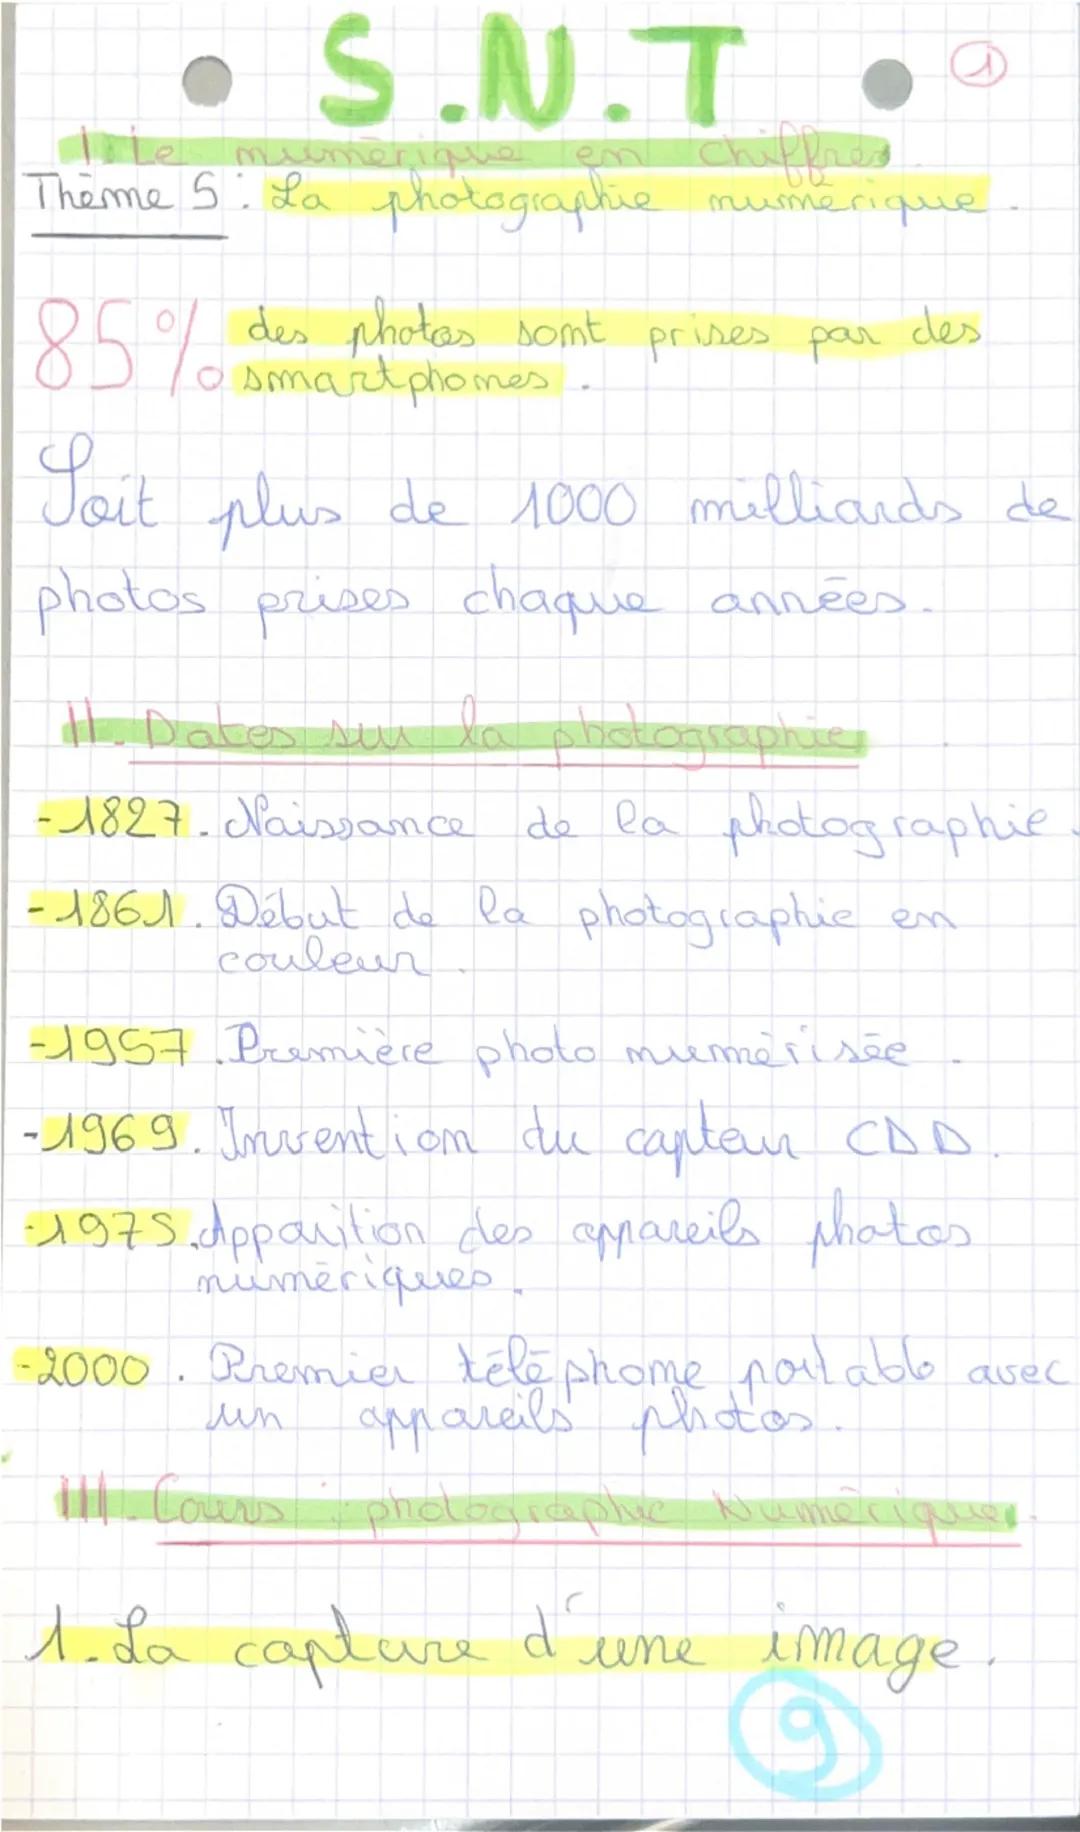 S.N.T
1
I. Le numérique en chiffres
Thème 5 : La photographie numérique.
85% des photos sont prises par des
smartphones.
Soit plus de 1000 milliards de
photos prises chaque années.
II. Dates sur la photographie
-1827. Naissance de la photographie.
-1861. Début de la photographie en
couleur.
-1957. Première photo numérisée.
-1969. Invention du capteur CDD.
-1975. Apparition des appareils photos
numériques.
-2000. Premier téléphone portable avec
un appareils photos.
III. Cours : photographie Numérique.
1. La capture d'une image.
9